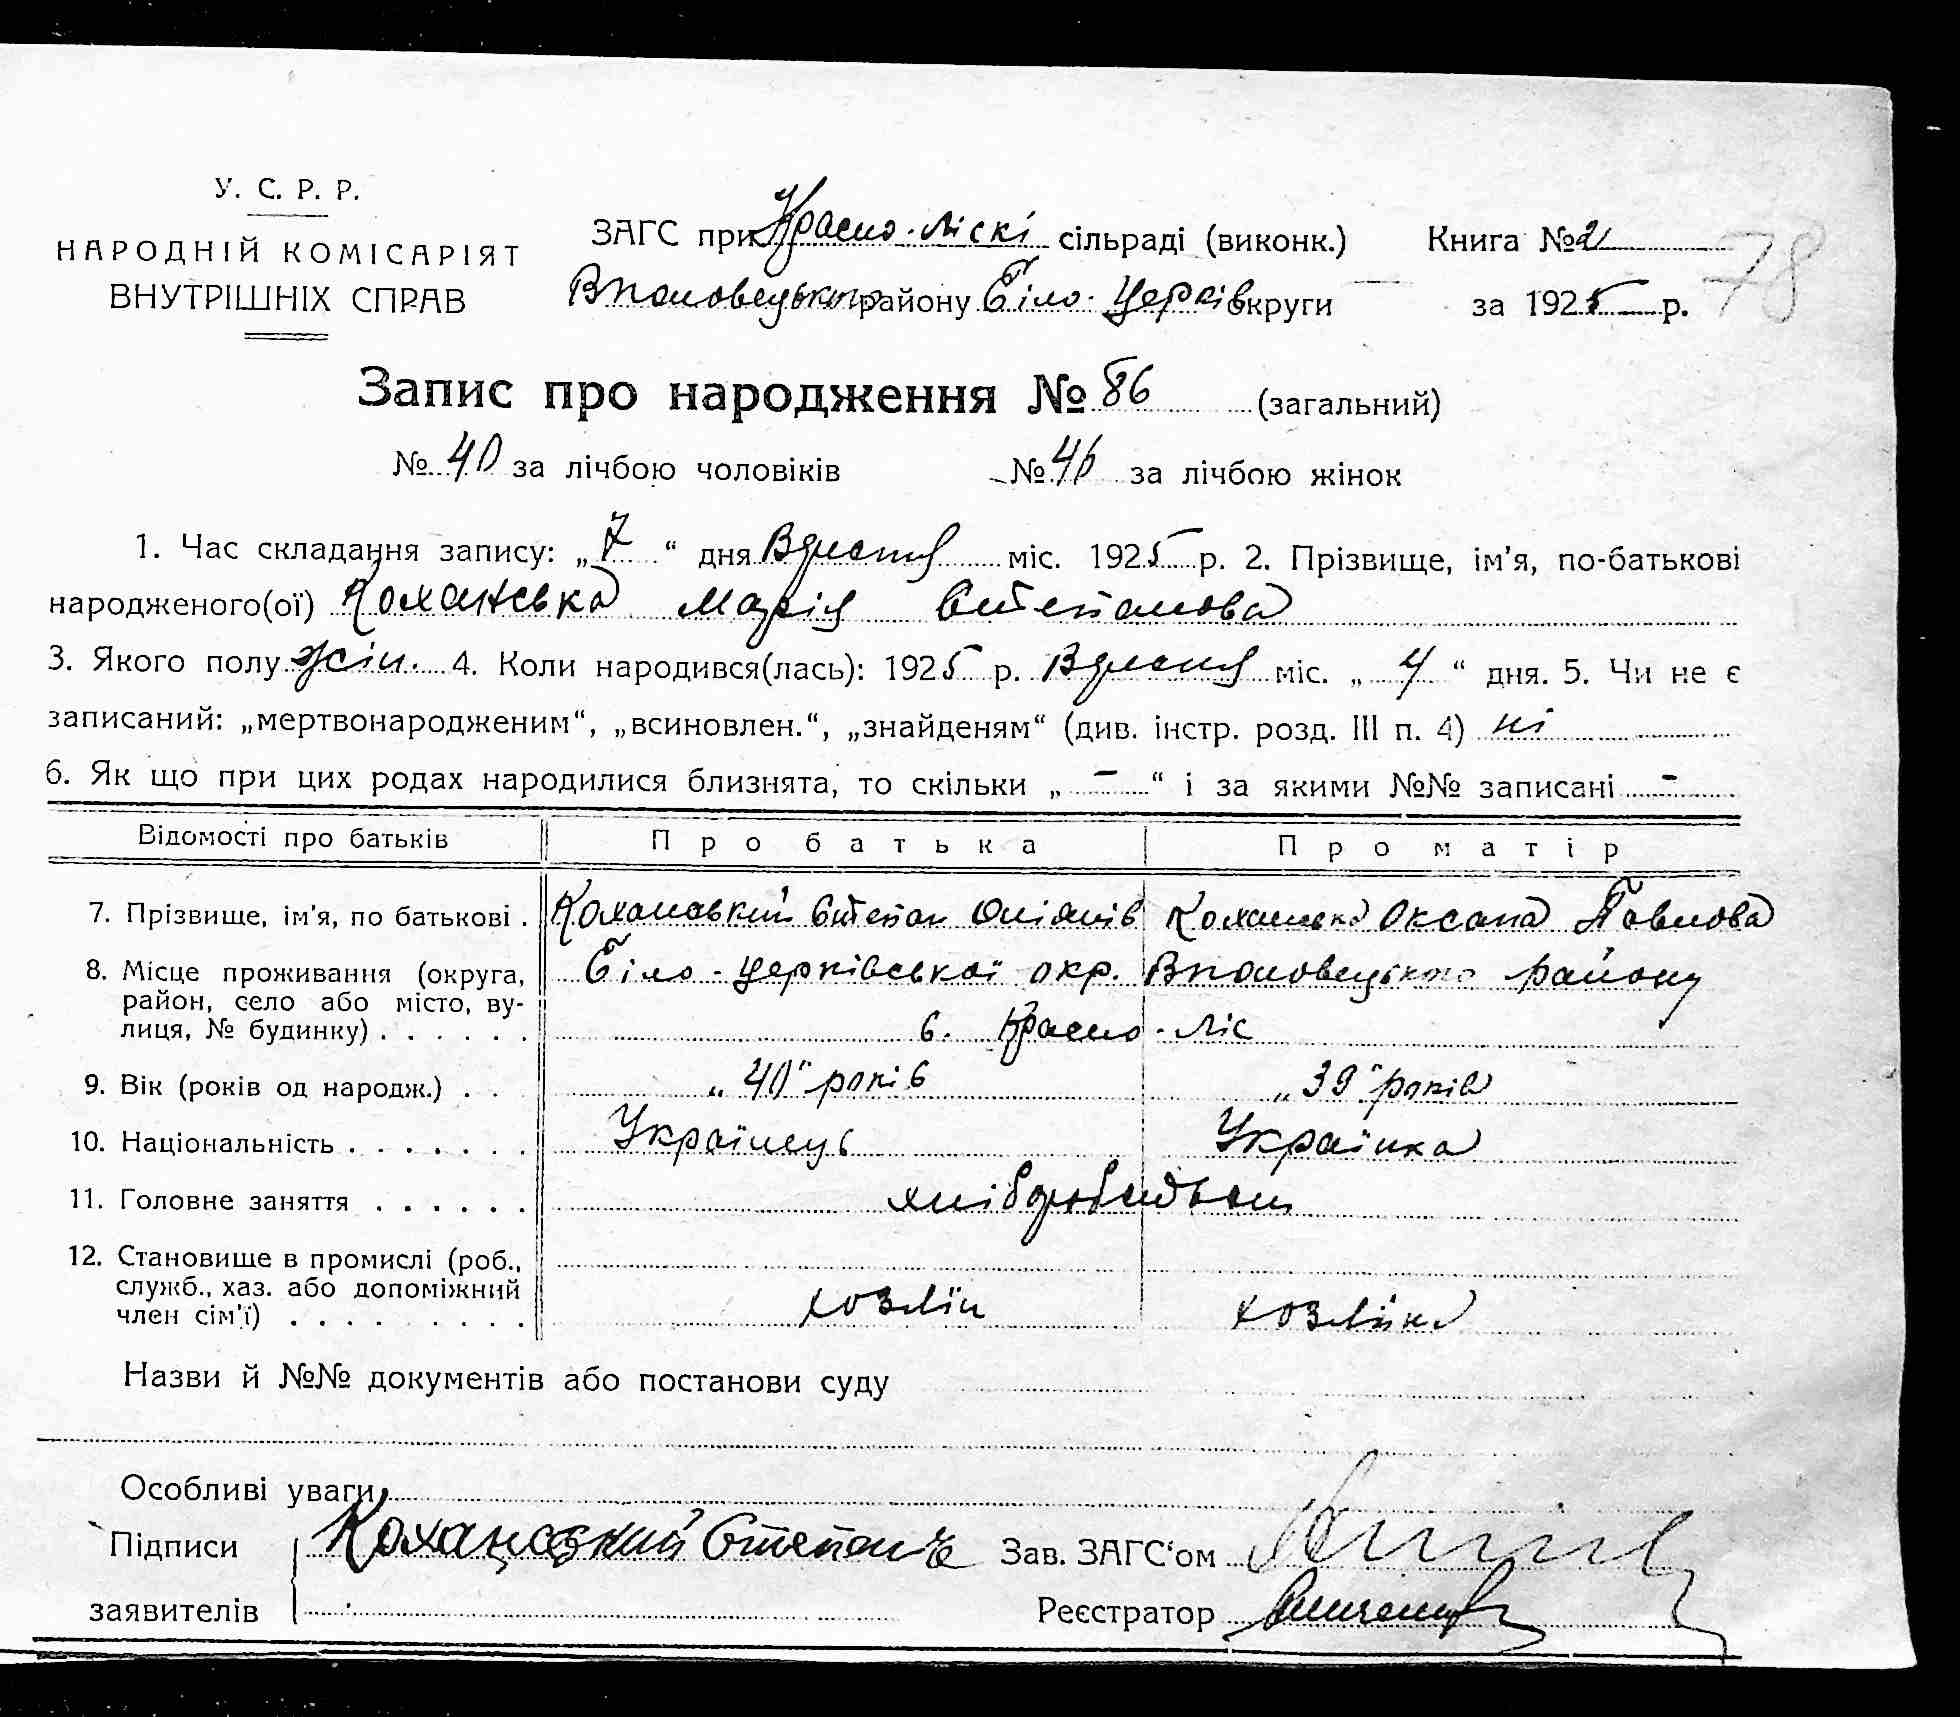 У. С. Р. Р.
НАРОДНІЙ КОМІСАРІЯТ
ВНУТРІШНІХ СПРАВ
ЗАГС при Красно-Ліскі сільраді (виконк.) Книга № 2
району Біло-Церків округи за 1925 р.
78
Запис про народження № 86 (загальний)
№ 40 за лічбою чоловіків № 46 за лічбою жінок
1. Час складання запису: „7“ дня міс. 1925 р. 2. Прізвище, ім'я, по-батькові
народженого(ої) Коханська Марія Степанова
3. Якого полу жін. 4. Коли народився(лась): 1925 р. міс. „4“ дня. 5. Чи не є
записаний: „мертвонародженим“, „всиновлен.“, „знайденям“ (див. інстр. розд. III п. 4) ні
6. Як що при цих родах народилися близнята, то скільки „-“ і за якими №№ записані -
Відомості про батьків Про батька Про матір
7. Прізвище, ім'я, по батькові . Коханський Степан Коханська Оксана Павлова
8. Місце проживання (округа, район, село або місто, вулиця, № будинку) . . . . . . Біло-Церківської окр. району
с. Красно-Ліс
9. Вік (років од народж.) . . „40“ років „39“ років
10. Національність . . . . . . . Українець Українка
11. Головне заняття . . . . . .
12. Становище в промислі (роб., служб., хаз. або допоміжний член сім'ї) . . . . . . . . . хозяїн хозяйка
Назви й №№ документів або постанови суду
Особливі уваги
Підписи Коханський Зав. ЗАГС'ом
заявителів Реєстратор